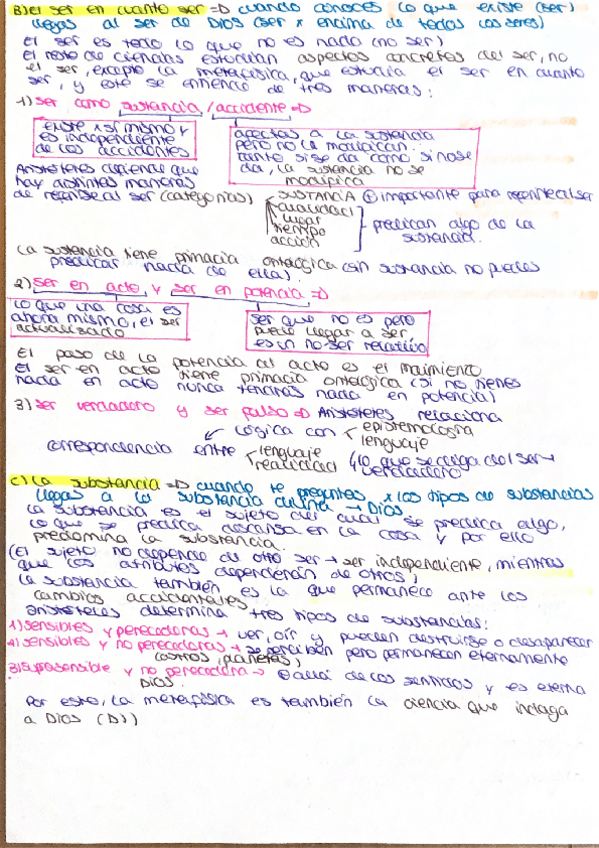 B) el ser en cuanto ser => cuando conoces lo que existe (ser)
llegas al ser de Dios (ser x encima de todos los seres)
El ser es todo lo que no es nada (no ser)
el resto de ciencias estudian aspectos concretos del ser, no
el ser, excepto la metafísica, que estudia el ser en cuanto
ser, y este se entiende de tres maneras:
1) ser como sustancia / accidente =>
existe x sí mismo y
es independiente
de los accidentes
afectas a la sustancia
pero no la modifican.
tanto si se da como si no se
da, la sustancia no se
modifica
Aristóteles defiende que
hay distintas maneras
de referirse al ser (categorías)
SUSTANCIA importante para referirse al ser
cualidad
lugar
tiempo
acción
predican algo de la
sustancia.
La sustancia tiene primacía ontológica (sin sustancia no puedes
predicar nada de ella).
2) ser en acto y ser en potencia =>
lo que una cosa es
ahora mismo, el ser
actualizado
ser que no es pero
puede llegar a ser.
es un no-ser relativo
El paso de la potencia al acto es el movimiento
el ser en acto tiene primacía ontológica (si no tienes
nada en acto nunca tendrás nada en potencia)
3) ser verdadero y ser falso => Aristóteles relaciona
lógica con epistemología
lenguaje
correspondencia entre lenguaje
realidad
lo que se diga del ser →
verdadero
C) La substancia => cuando te preguntes x los tipos de substancias
llegas a la substancia divina → Dios
La substancia es el sujeto del cual se predica algo,
lo que se predica descansa en la cosa y por ello
predomina la substancia.
(El sujeto no depende de otro ser → ser independiente, mientras
que los atributos dependerán de otros)
La substancia también es la que permanece ante los
cambios accidentales
Aristóteles determina tres tipos de substancias:
1) sensibles y perecederas → ver, oír y pueden destruirse o desaparecer
2) sensibles y no perecederas → se perciben pero permanecen eternamente
(astros, planetas)
3) suprasensible y no perecedera → allá de los sentidos y es eterna
Dios.
Por esto, la metafísica es también la ciencia que indaga
a Dios (D))